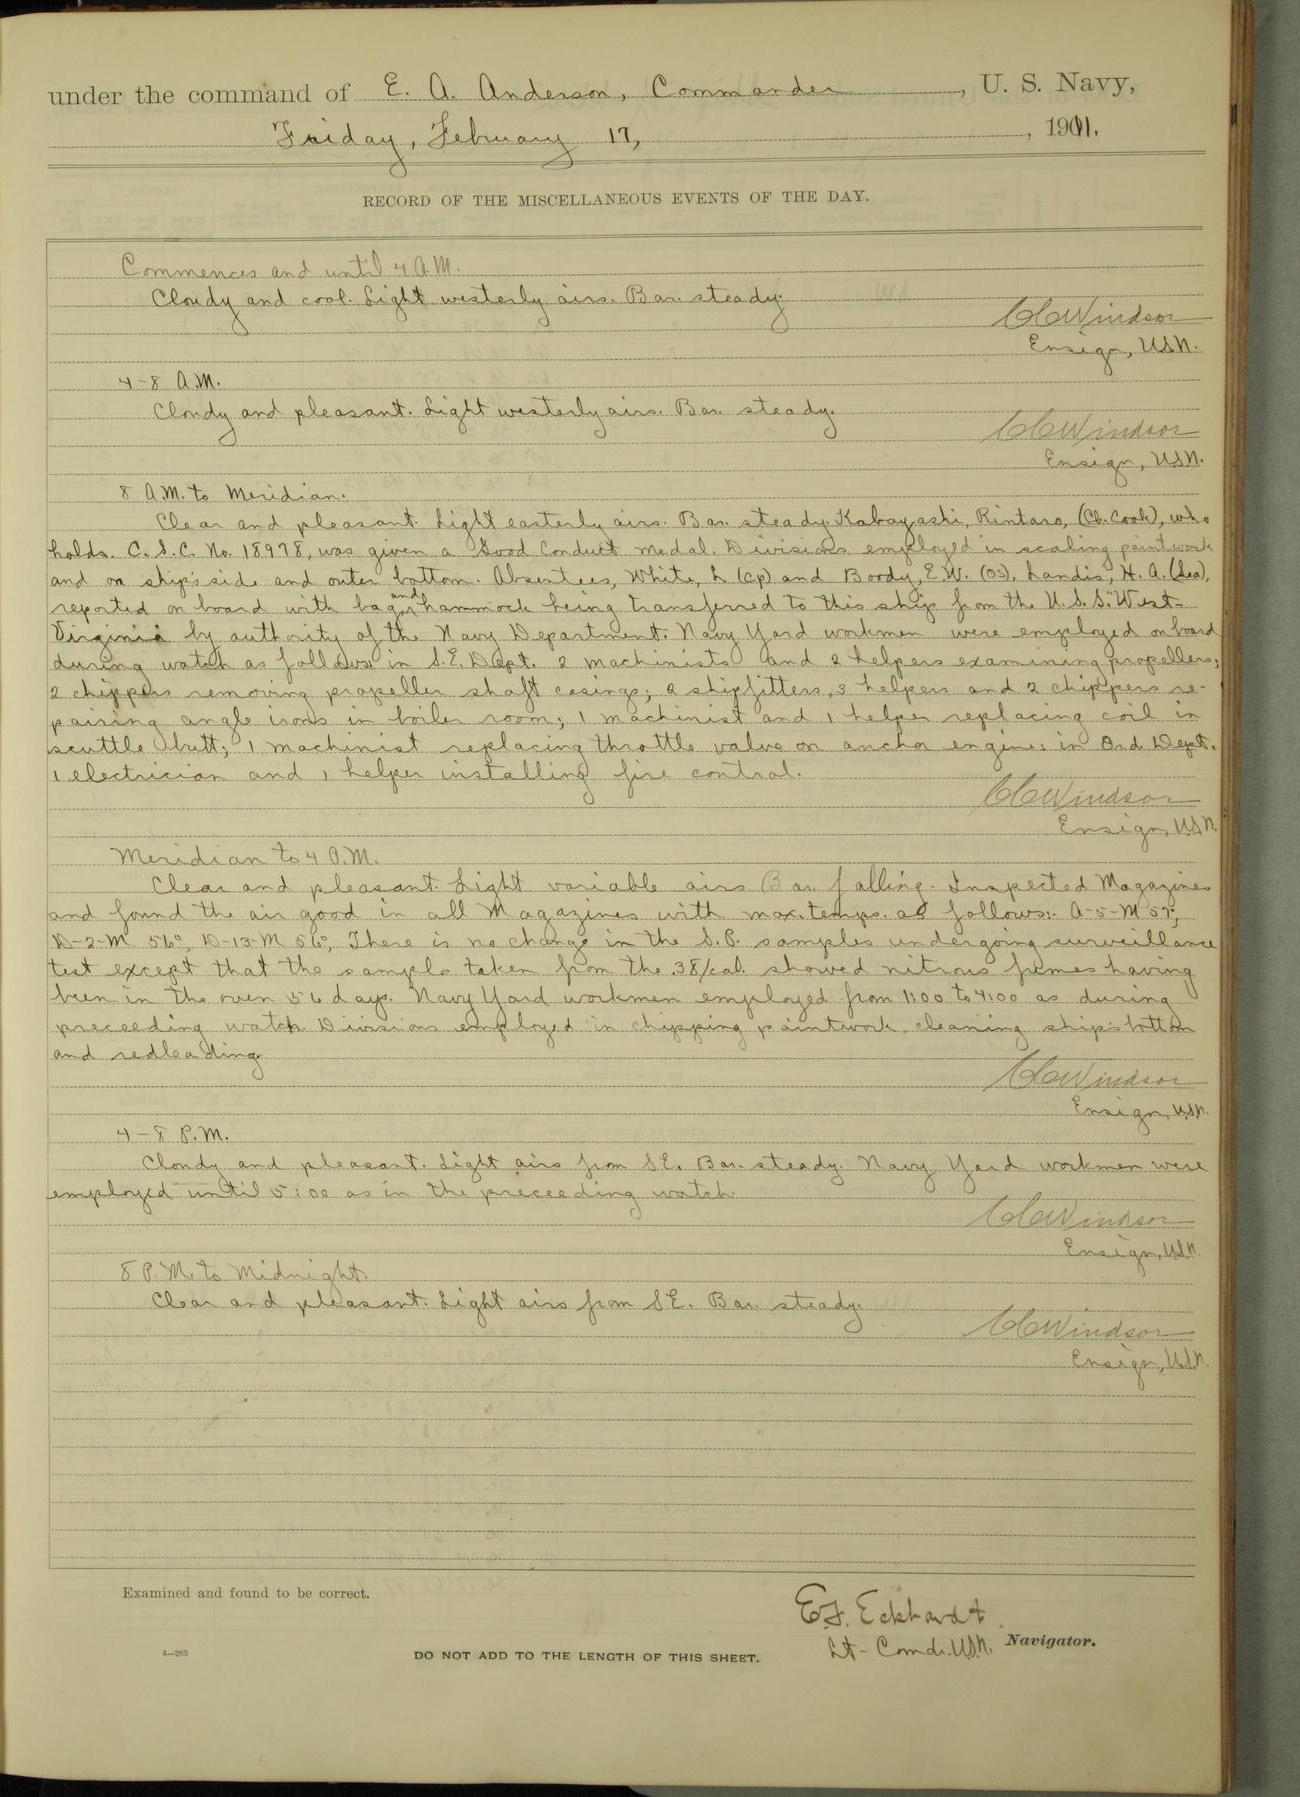 under the command of E. A. Anderson, Commander, U. S. Navy,
Friday, February 17, 1911.
RECORD OF THE MISCELLANEOUS EVENTS OF THE DAY.
Commences and until 4 A.M.
Cloudy and cool. Light westerly airs. Bar. steady.
CCWindsor
Ensign, U.S.N.
4-8 A.M.
Cloudy and pleasant. Light westerly airs. Bar. steady.
CCWindsor
Ensign, U.S.N.
8 A.M. to Meridian.
Clear and pleasant. Light easterly airs. Bar. steady. Kabayashi, Rintaro, (Cb. Cook), who
holds C. S. C. No. 18978, was given a Good Conduct medal. Divisions employed in scaling paintwork
and on ship's side and outer bottom. Absentees, White, L (Cp) and Boody, E.W. (OS). Landis, H. A. (Sea),
reported on board with bag and hammock being transferred to this ship from the U. S. S. "West-
Virginia by authority of the Navy Department. Navy Yard workmen were employed on board
during watch as follows: in S.E. Dept. 2 machinists and 2 helpers examining propellers;
2 chippers removing propeller shaft casings; 2 shipfitters, 3 helpers and 2 chippers re-
pairing angle irons in boiler room; 1 machinist and 1 helper replacing coil in
scuttle butt; 1 machinist replacing throttle valve on anchor engine: in Ord. Dept.
1 electrician and 1 helper installing fire control.
CCWindsor
Ensign, U.S.N.
Meridian to 4 P.M.
Clear and pleasant. Light variable airs Bar. falling. Inspected Magazines
and found the air good in all Magazines with max. temps. as follows:- A-5-M 57°,
D-2-M 56°, D-13-M 56°, There is no change in the S.P. samples undergoing surveillance
test except that the sample taken from the .38/cal. showed nitrous fumes having
been in the oven 56 days. Navy Yard workmen employed from 1:00 to 4:00 as during
preceeding watch. Divisions employed in chipping paintwork, cleaning ship's bottom
and redleading.
CCWindsor
Ensign, U.S.N.
4-8 P.M.
Cloudy and pleasant. Light airs from SE. Bar. steady. Navy Yard workmen were
employed until 5:00 as in the preceeding watch.
CCWindsor
Ensign, U.S.N.
8 P.M. to Midnight.
Clear and pleasant. Light airs from SE. Bar. steady.
CCWindsor
Ensign, U.S.N.
Examined and found to be correct.
E.F. Eckhardt
Lt-Comdr. U.S.N. Navigator.
4—265
DO NOT ADD TO THE LENGTH OF THIS SHEET.